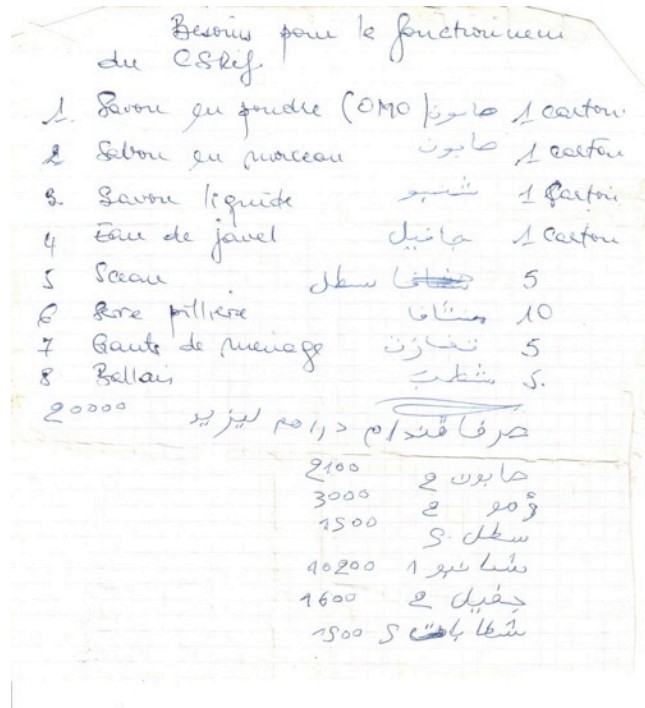 Besoins pour le fonctionnement
du CSRif.
1. Savon en poudre (OMO) صابون 1 carton
2 Sabon en morceau صابون 1 carton
3. Savon liquide شنبو 1 Carton
4 Eau de javel جافيل 1 Carton
5 Sceau سطل 5
6 Serre pilliere منشافا 10
7 Gants de menage تقازن 5
8 Ballais شطب 5.
20000 صرفا درام ليزيد
صابون 2 2100
ومو 2 3000
سطل 5. 1500
شانبو 1 10200
جفيل 2 1600
شطابات 5 1500